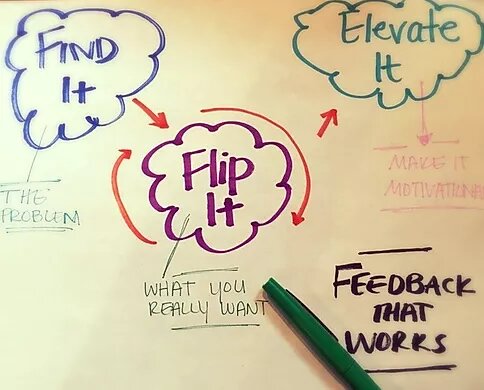 FIND
It
THE
PROBLEM
Flip
It
WHAT YOU
REALLY WANT
Elevate
It
MAKE IT
MOTIVATIONAL
FEEDBACK
THAT
WORKS